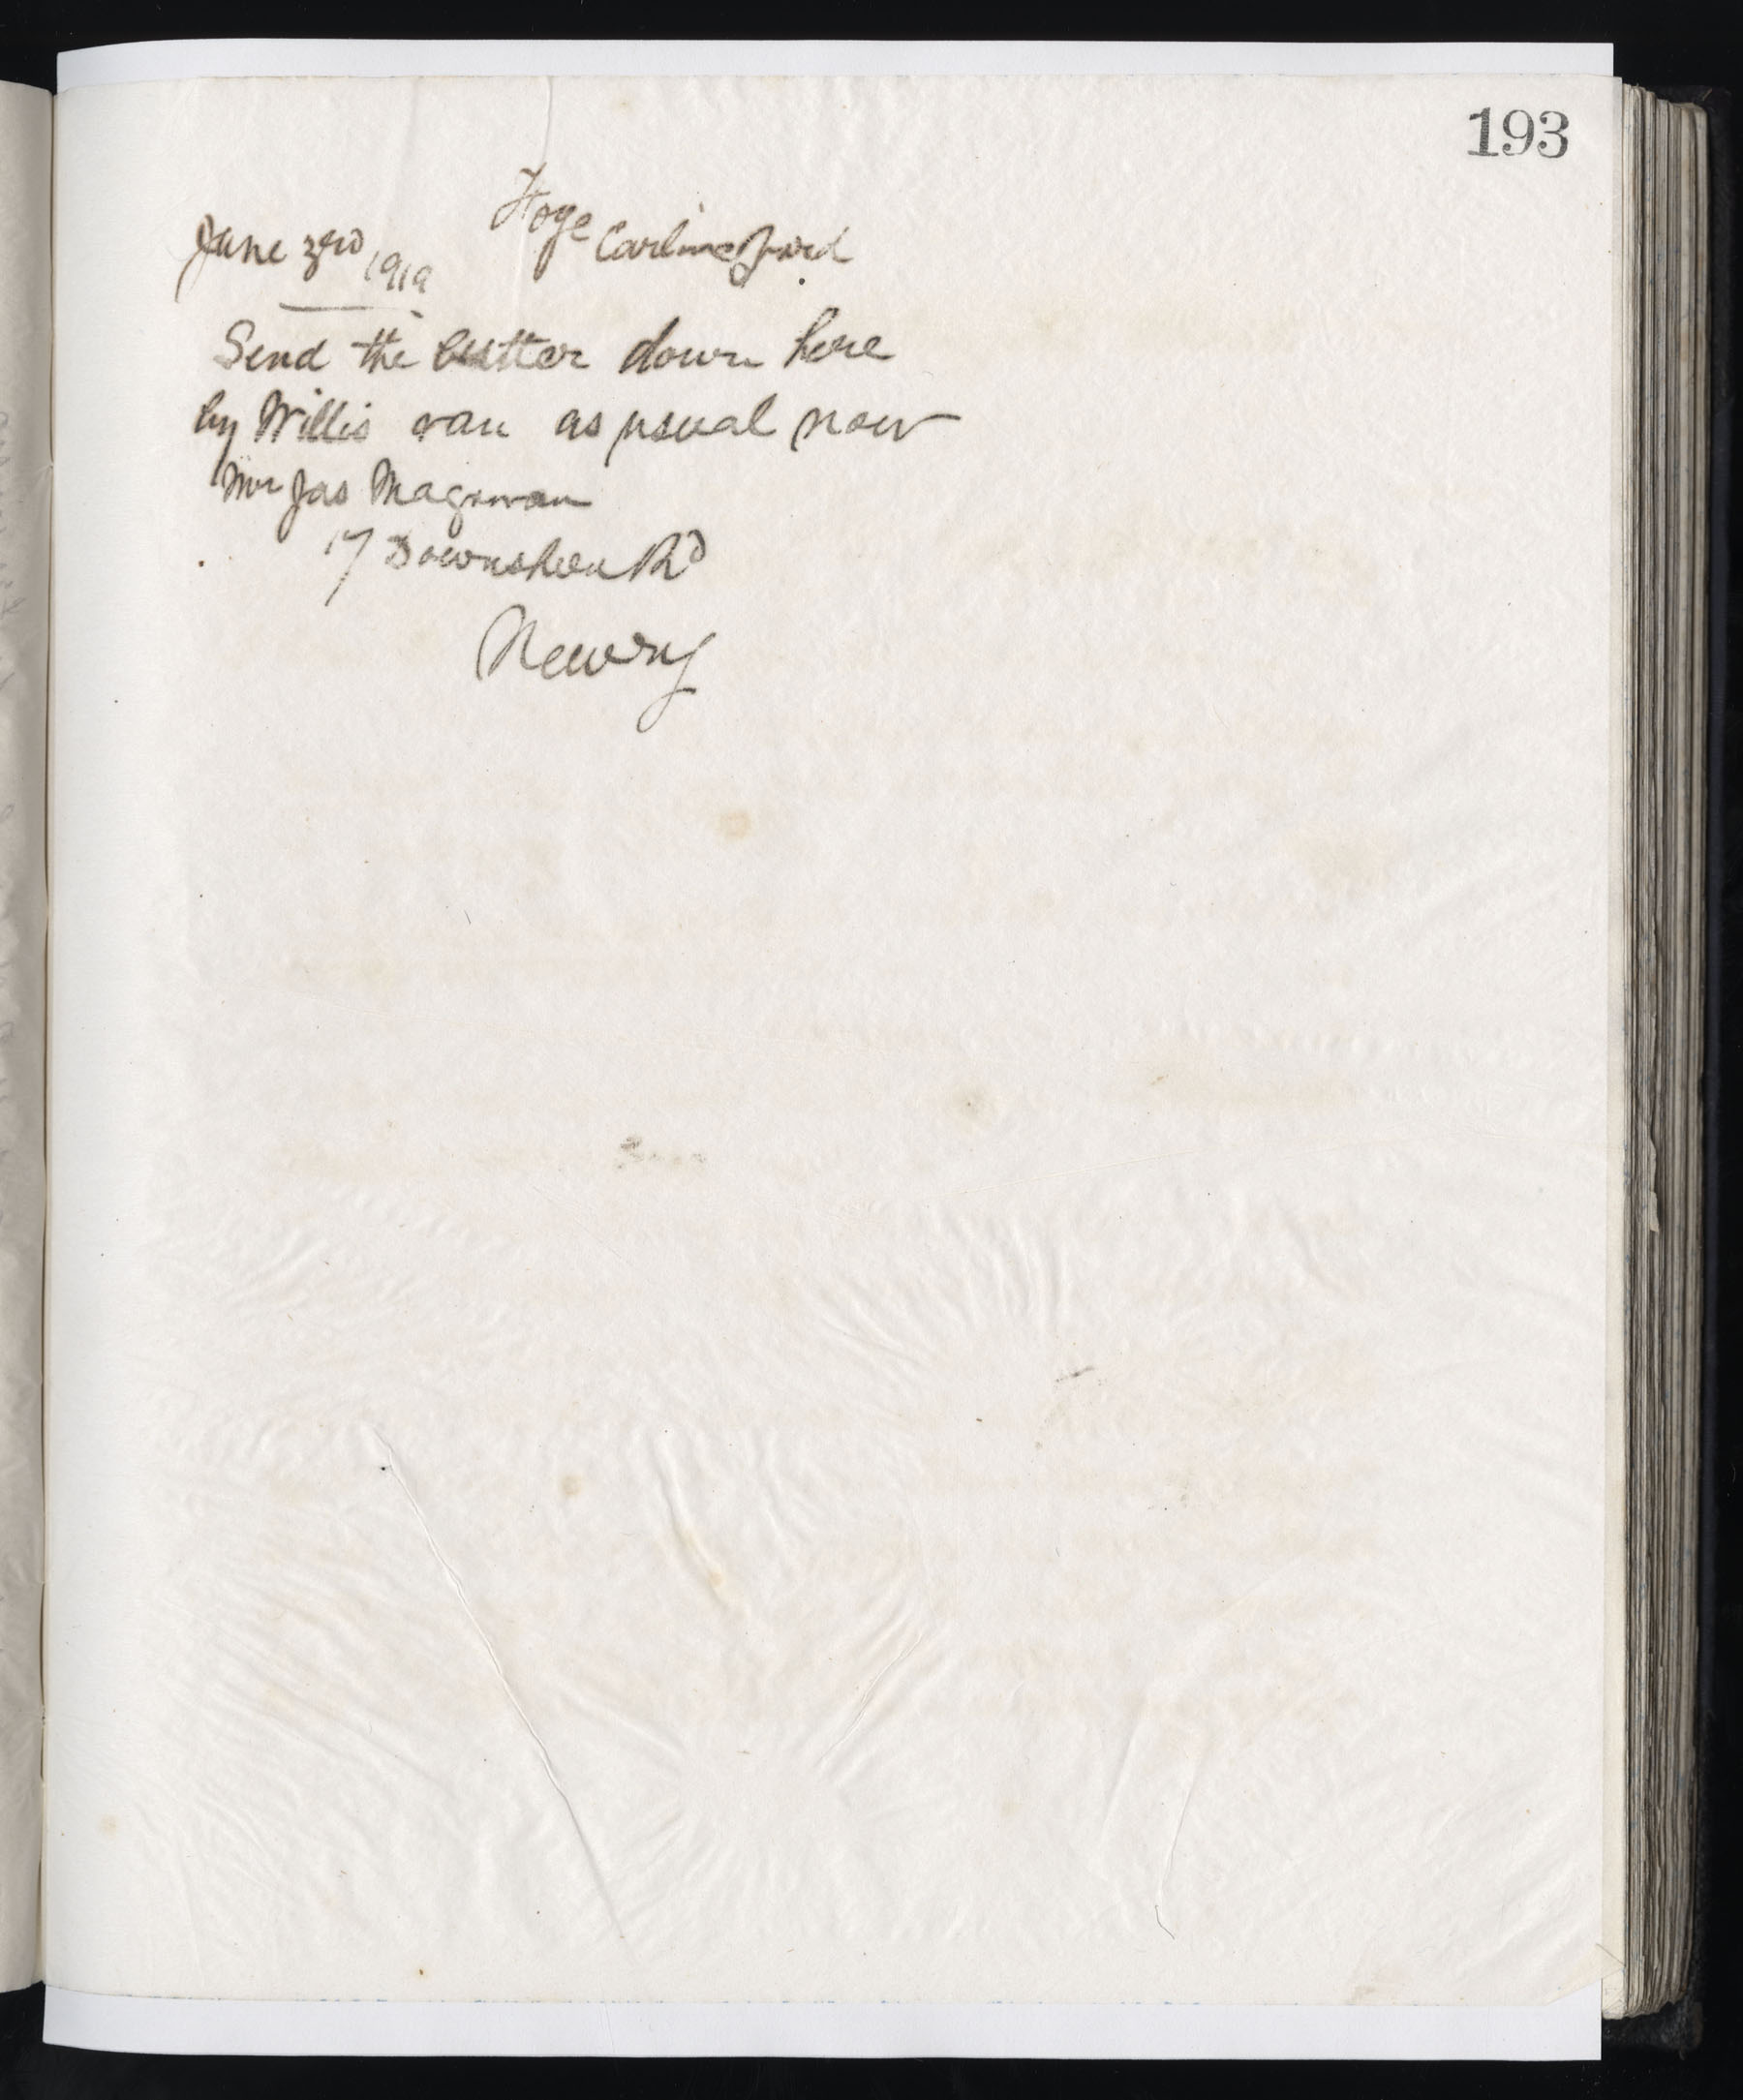 193
June 3rd 1919 Hoye Carlingford
Send the butter down here
by Willis van as usual now
Mr Jas Magowan
17 Downshere Rd
Newry